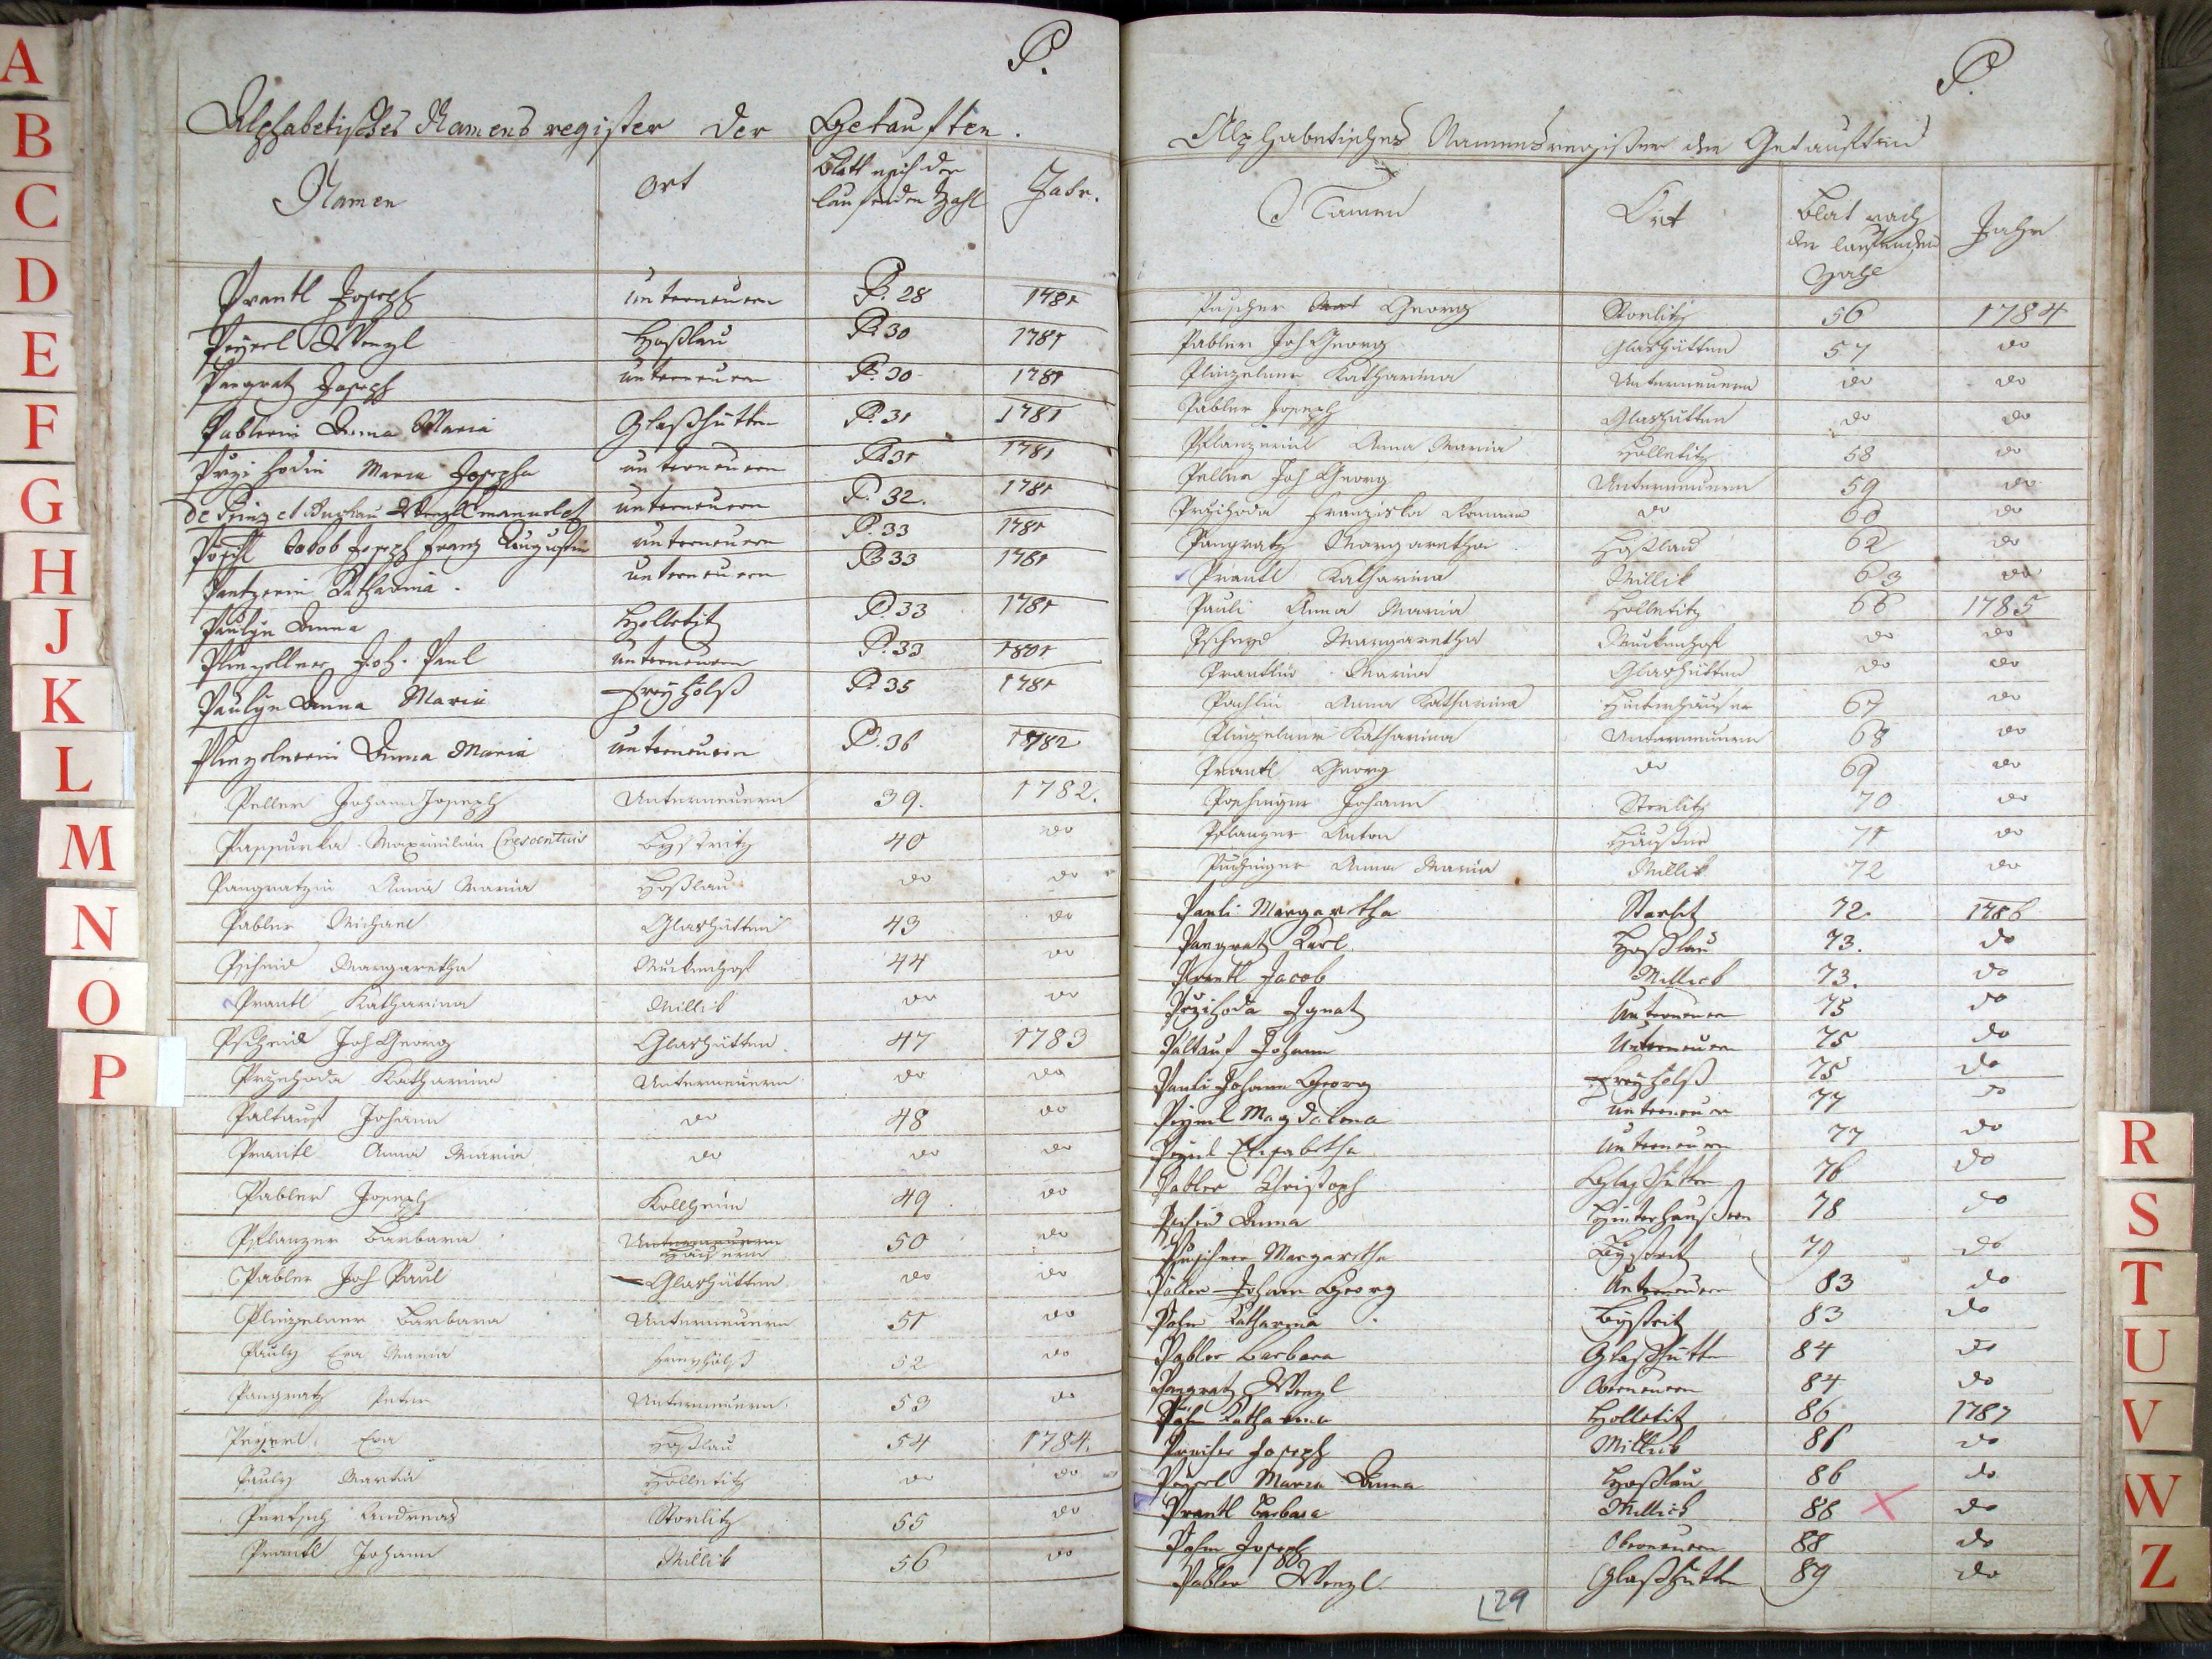 A
B
C
D
E
F
G
H
J
K
L
M
N
O
P
P.
Alphabetisches Namens register der Getauften.
Namen Ort Blatt nach der laufenden Zahl Jahr.
Prantl Joseph unterneuern P. 28 1781
Peyerl Wenzl Hoßlau P. 30 1781
Pangratz Joseph unterneuern P. 30 1781
Pablerin Anna Maria Glaßhütten P. 31 1781
Przihodin Maria Josepha unterneuern P. 31 1781
unterneuern P. 32. 1781
Pöschl Jakob Joseph Franz Augustin unterneuern P. 33 1781
Katharina unterneuern P. 33 1781
Paulyn Anna Holletitz P. 33 1781
Plinzellner Joh. Paul unterneuern P. 33 1781
Paulyn Anna Maria Freyhölß P. 35 1781
Plinzelnerin Anna Maria unterneuern P. 36 1782
Peller Johann Joseph Unterneuern 39. 1782.
Maximilian Crescentius Bystritz 40 do
Pangratzin Anna Maria Hoßlau do do
Pabler Michael Glashütten 43 do
Pscheid Margaretha Muckenhof 44 do
Prantl Katharina Millik do do
Pscheid Joh Georg Glashütten 47 1783
Przihoda Katharina Unterneuern do do
Paltauf Johann do 48 do
Prantl Anna Maria do do do
Pabler Joseph Kollheim 49 do
Pflanzer Barbara Unterneuern Häusern 50 do
Pabler Joh Paul Glashütten do do
Plinzelner Barbara Unterneuern 51 do
Pauly Eva Maria Freyhölß 52 do
Pangratz Peter Unterneuern 53 do
Peyerl Eva Hoßlau 54 1784.
Pauly Martin Holletitz do do
Pertsch Andreas Storlitz 55 do
Prantl Johann Millik 56 do
P.
Alphabetisches Namensregister der Getauften
Namen Ort Blat nach der laufenden Zahl Jahr
Puscher Georg Storlitz 56 1784
Pabler Joh Georg Glashütten 57 do
Plinzelner Katharina Unterneuern do do
Pabler Joseph Glashütten do do
Pflanzerin Anna Maria Holletitz 58 do
Peller Joh Georg Unterneuern 59 do
Przihoda Franziska Romana do 60 do
Pangratz Margaretha Hoßlau 62 do
Prantl Katharina Millik 63 do
Pauli Anna Maria Holletitz 66 1785
Pscheyd Margaretha Muckenhof do do
Prantlin Maria Glashütten do do
Anna Katharina Hinterhäuser 67 do
Plinzelner Katharina Unterneuern 68 do
Prantl Georg do 69 do
Poschinger Johann Storlitz 70 do
Pflanzer Anton Häusern 71 do
Anna Maria Millik 72 do
Pauli Margaretha Storlitz 72. 1786
Pangratz Karl Hoßlau 73. do
Prantl Jacob Millick 73. do
Przihoda Ignatz Unterneuern 75 do
Paltauf Johann Unterneuern 75 do
Pauli Johann Georg Freyhölß 75 do
Magdalena unterneuern 77 do
Elisabetha Unterneuern 77 do
Pabler Christoph Glaßhütten 76 do
Pscheid Anna Hinterhaußern 78 do
Puscher Margaretha Bystritz 79 do
Peller Johann Georg Unterneuern 83 do
Katharina Bystritz 83 do
Pabler Barbara Glaßhütten 84 do
Pangratz Wenzl Oberneuern 84 do
Katharina Holletitz 86 1787
Joseph Millick 86 do
Peyerl Maria Anna Hoßlau 86 do
Prantl Barbara Millick 88 do
Joseph Oberneuern 88 do
Pabler Wenzl Glaßhütten 89 do
29
R
S
T
U
V
W
Z